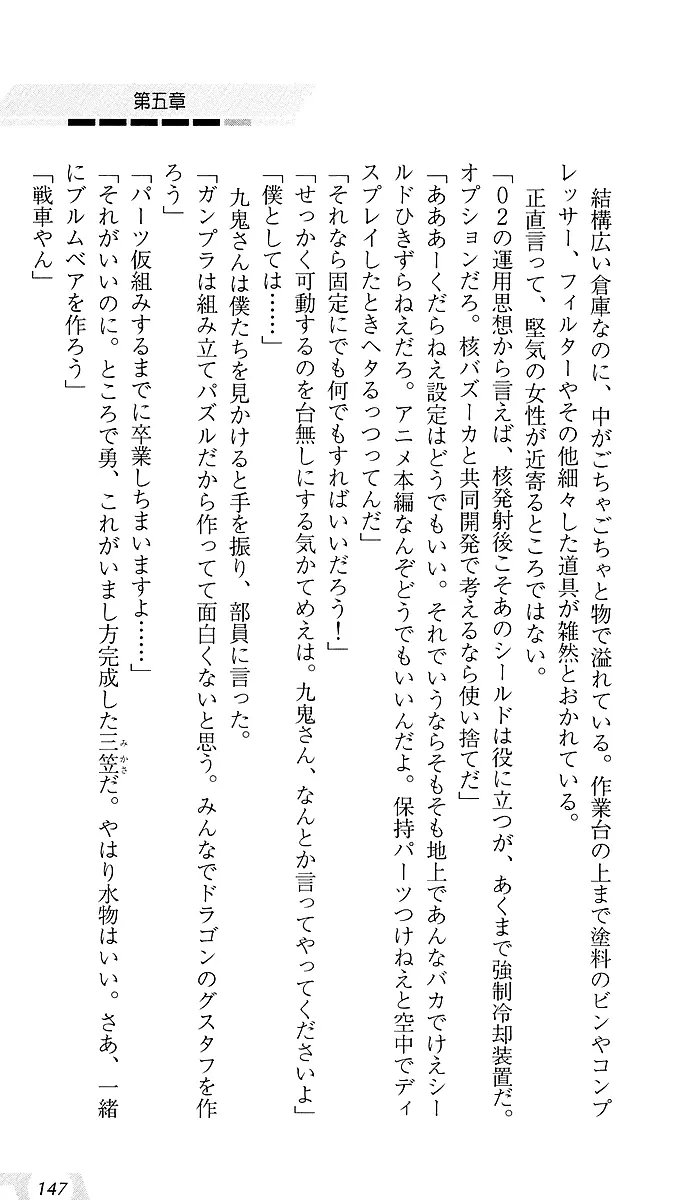 第五章
　結構広い倉庫なのに、中がごちゃごちゃと物で溢れている。作業台の上まで塗料のビンやコンプ
レッサー、フィルターやその他細々した道具が雑然とおかれている。
　正直言って、堅気の女性が近寄るところではない。
「０２の運用思想から言えば、核発射後こそあのシールドは役に立つが、あくまで強制冷却装置だ。
オプションだろ。核バズーカと共同開発で考えるなら使い捨てだ」
「あああーくだらねえ設定はどうでもいい。それでいうならそもそも地上であんなバカでけえシー
ルドひきずらねえだろ。アニメ本編なんぞどうでもいいんだよ。保持パーツつけねえと空中でディ
スプレイしたときヘタるっつってんだ」
「それなら固定にでも何でもすればいいだろう！」
「せっかく可動するのを台無しにする気かてめえは。九鬼さん、なんとか言ってやってくださいよ」
「僕としては……」
　九鬼さんは僕たちを見かけると手を振り、部員に言った。
「ガンプラは組み立てパズルだから作ってて面白くないと思う。みんなでドラゴンのグスタフを作
ろう」
「パーツ仮組みするまでに卒業しちまいますよ……」
「それがいいのに。ところで勇、これがいまし方完成した三笠だ。やはり水物はいい。さあ、一緒
みかさ
にブルムベアを作ろう」
「戦車やん」
147